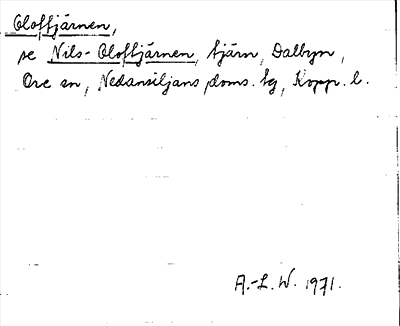 Oloftjärnen,
se Nils-Oloftjärnen, tjärn, Dalbyn,
Ore sn, Nedansiljans doms. tg, Kopp. l.
A.-L. W. 1971.